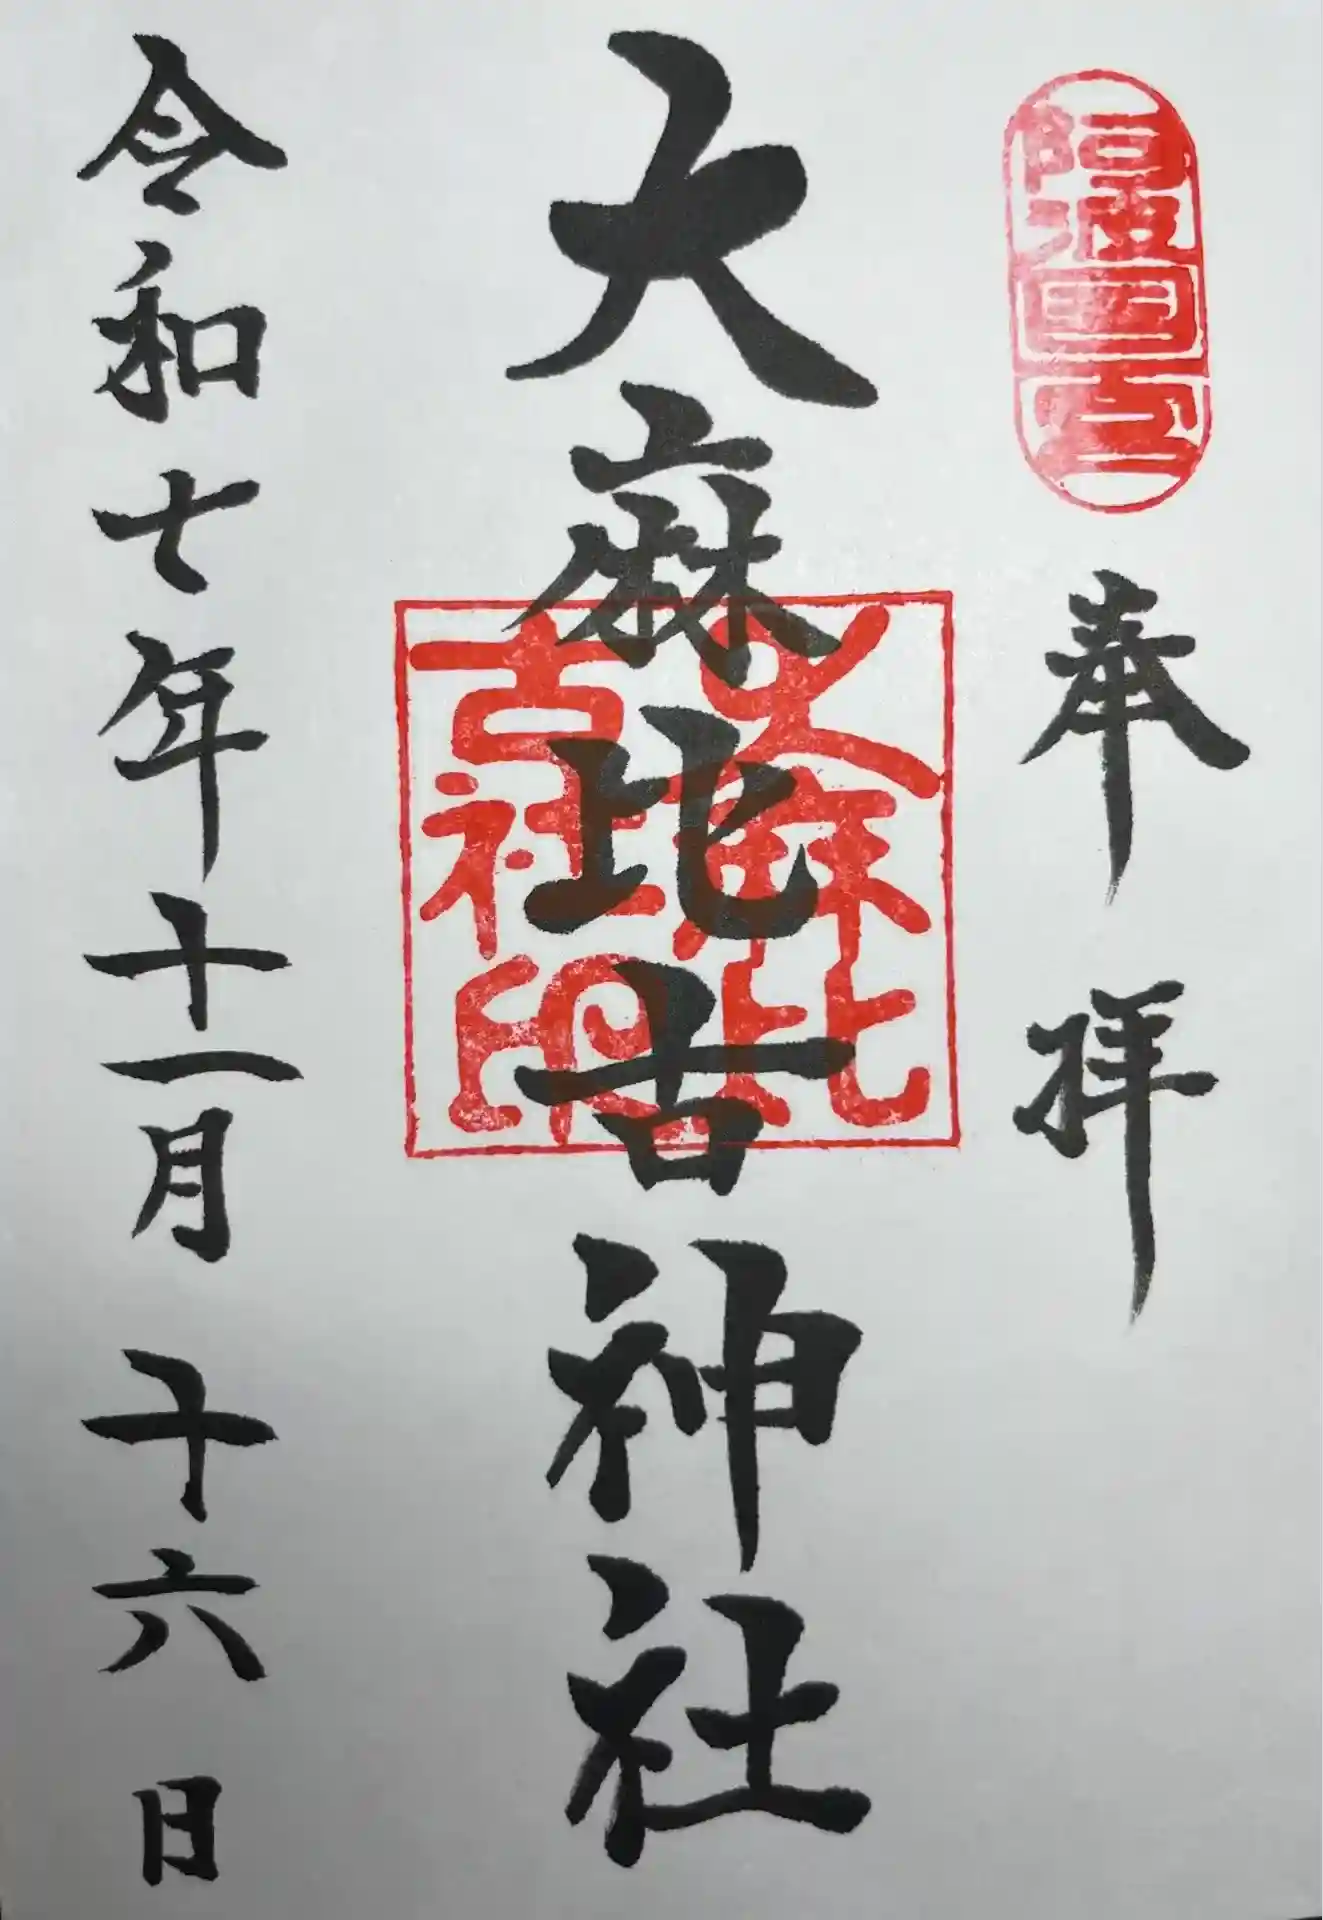 阿波国
奉拝
大麻比古神社
大麻比
古社印
令和七年十一月十六日